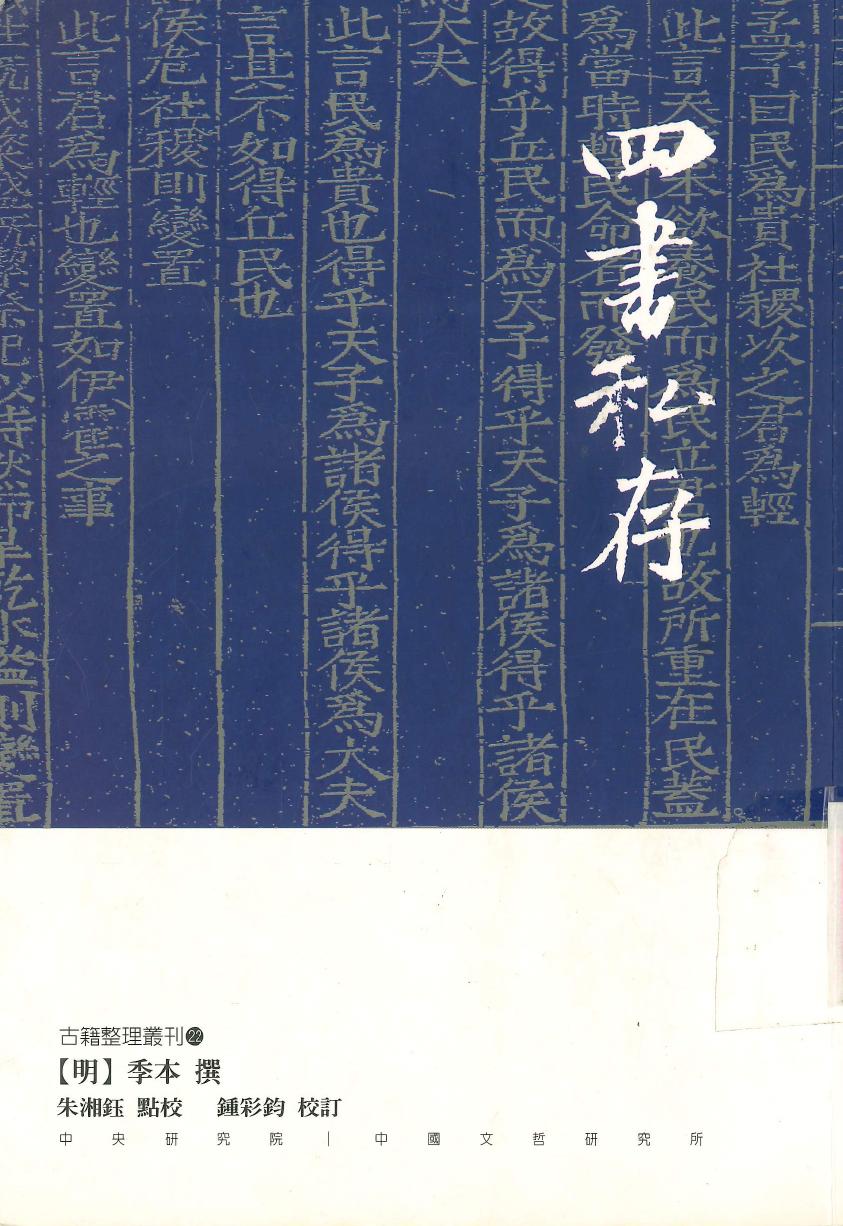 四書私存
孟子曰民爲貴社稷次之君爲輕
此言天本欲養民而爲民立君也故所重在民蓋
爲當時輕民命者而發
是故得乎丘民而爲天子得乎天子爲諸侯得乎諸侯
爲大夫
此言民爲貴也得乎天子爲諸侯得乎諸侯爲大夫
言其不如得丘民也
諸侯危社稷則變置
此言君爲輕也變置如伊霍之事
牲既成粢盛既潔祭祀以時然而旱乾水溢則變置
古籍整理叢刊22
【明】季本 撰
朱湘鈺 點校 鍾彩鈞 校訂
中央研究院|中國文哲研究所